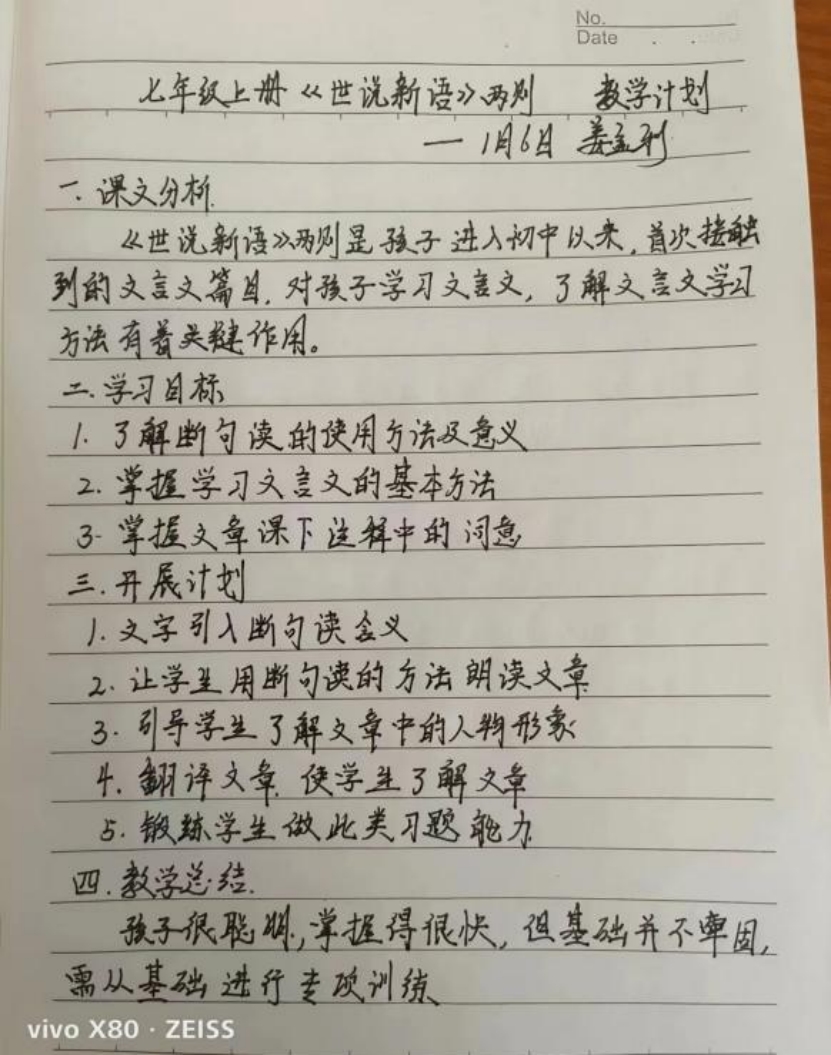 No.
Date
七年级上册《世说新语》两则 教学计划
— 1月6日 姜孟利
一.课文分析.
《世说新语》两则是孩子进入初中以来,首次接触
到的文言文篇目,对孩子学习文言文,了解文言文学习
方法有着关键作用。
二.学习目标
1. 了解断句读的使用方法及意义
2. 掌握学习文言文的基本方法
3. 掌握文章课下注释中的词意
三.开展计划
1. 文字引入断句读含义
2. 让学生用断句读的方法朗读文章
3. 引导学生了解文章中的人物形象
4. 翻译文章,使学生了解文章
5. 锻练学生做此类习题能力
四.教学总结.
孩子很聪明,掌握得很快,但基础并不牢固,
需从基础进行专项训练
vivo X80 · ZEISS